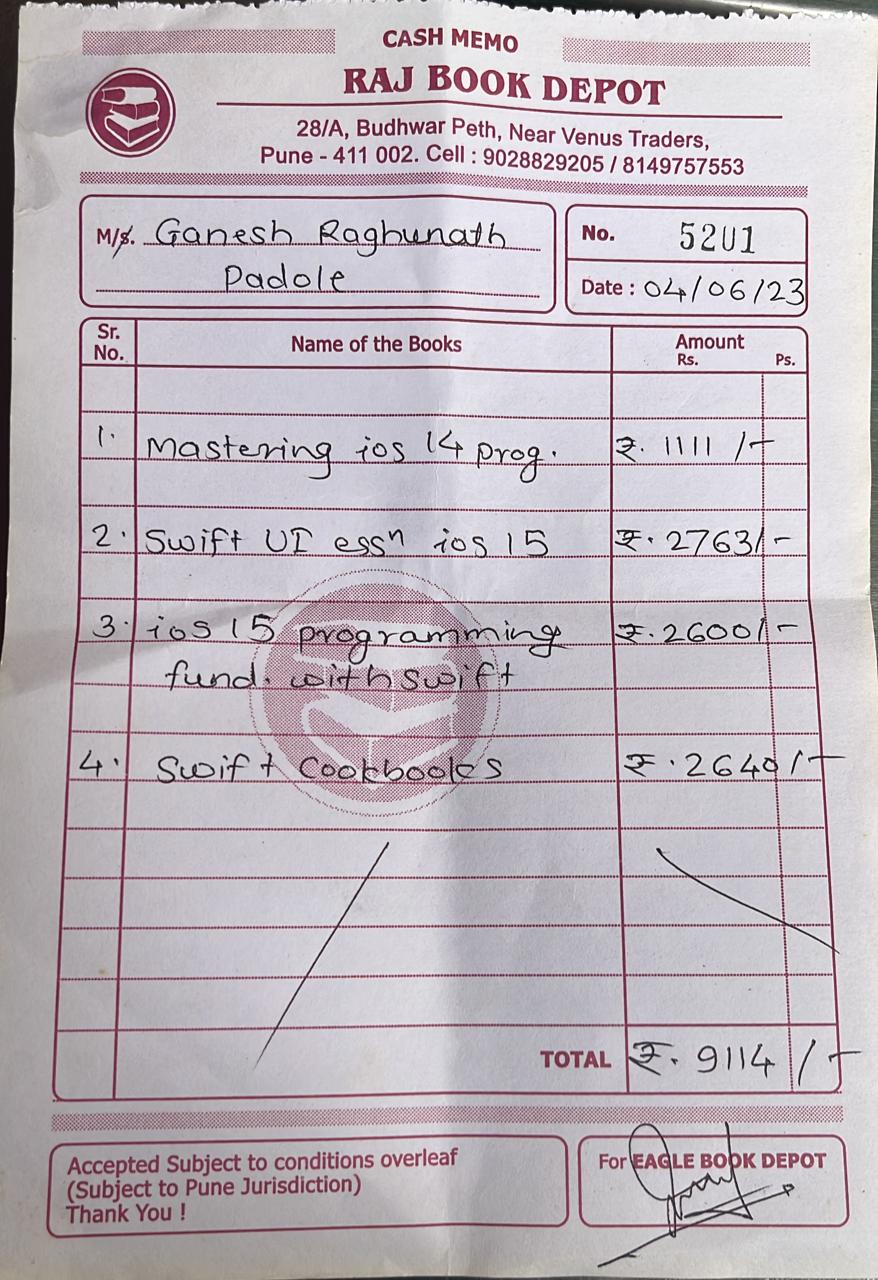 CASH MEMO
RAJ BOOK DEPOT
28/A, Budhwar Peth, Near Venus Traders,
Pune - 411 002. Cell : 9028829205 / 8149757553
M/s. Ganesh Raghunath
Padole
No. 5201
Date : 04/06/23
Sr. No. Name of the Books Amount Rs. Ps.
1. Mastering ios 14 prog. ₹. 1111 /-
2. Swift UI essⁿ ios 15 ₹. 2763/-
3. ios 15 programming ₹. 2600/-
fund. with swift
4. Swift Cookbooks ₹. 2640/-
TOTAL ₹. 9114 /-
Accepted Subject to conditions overleaf
(Subject to Pune Jurisdiction)
Thank You !
For EAGLE BOOK DEPOT